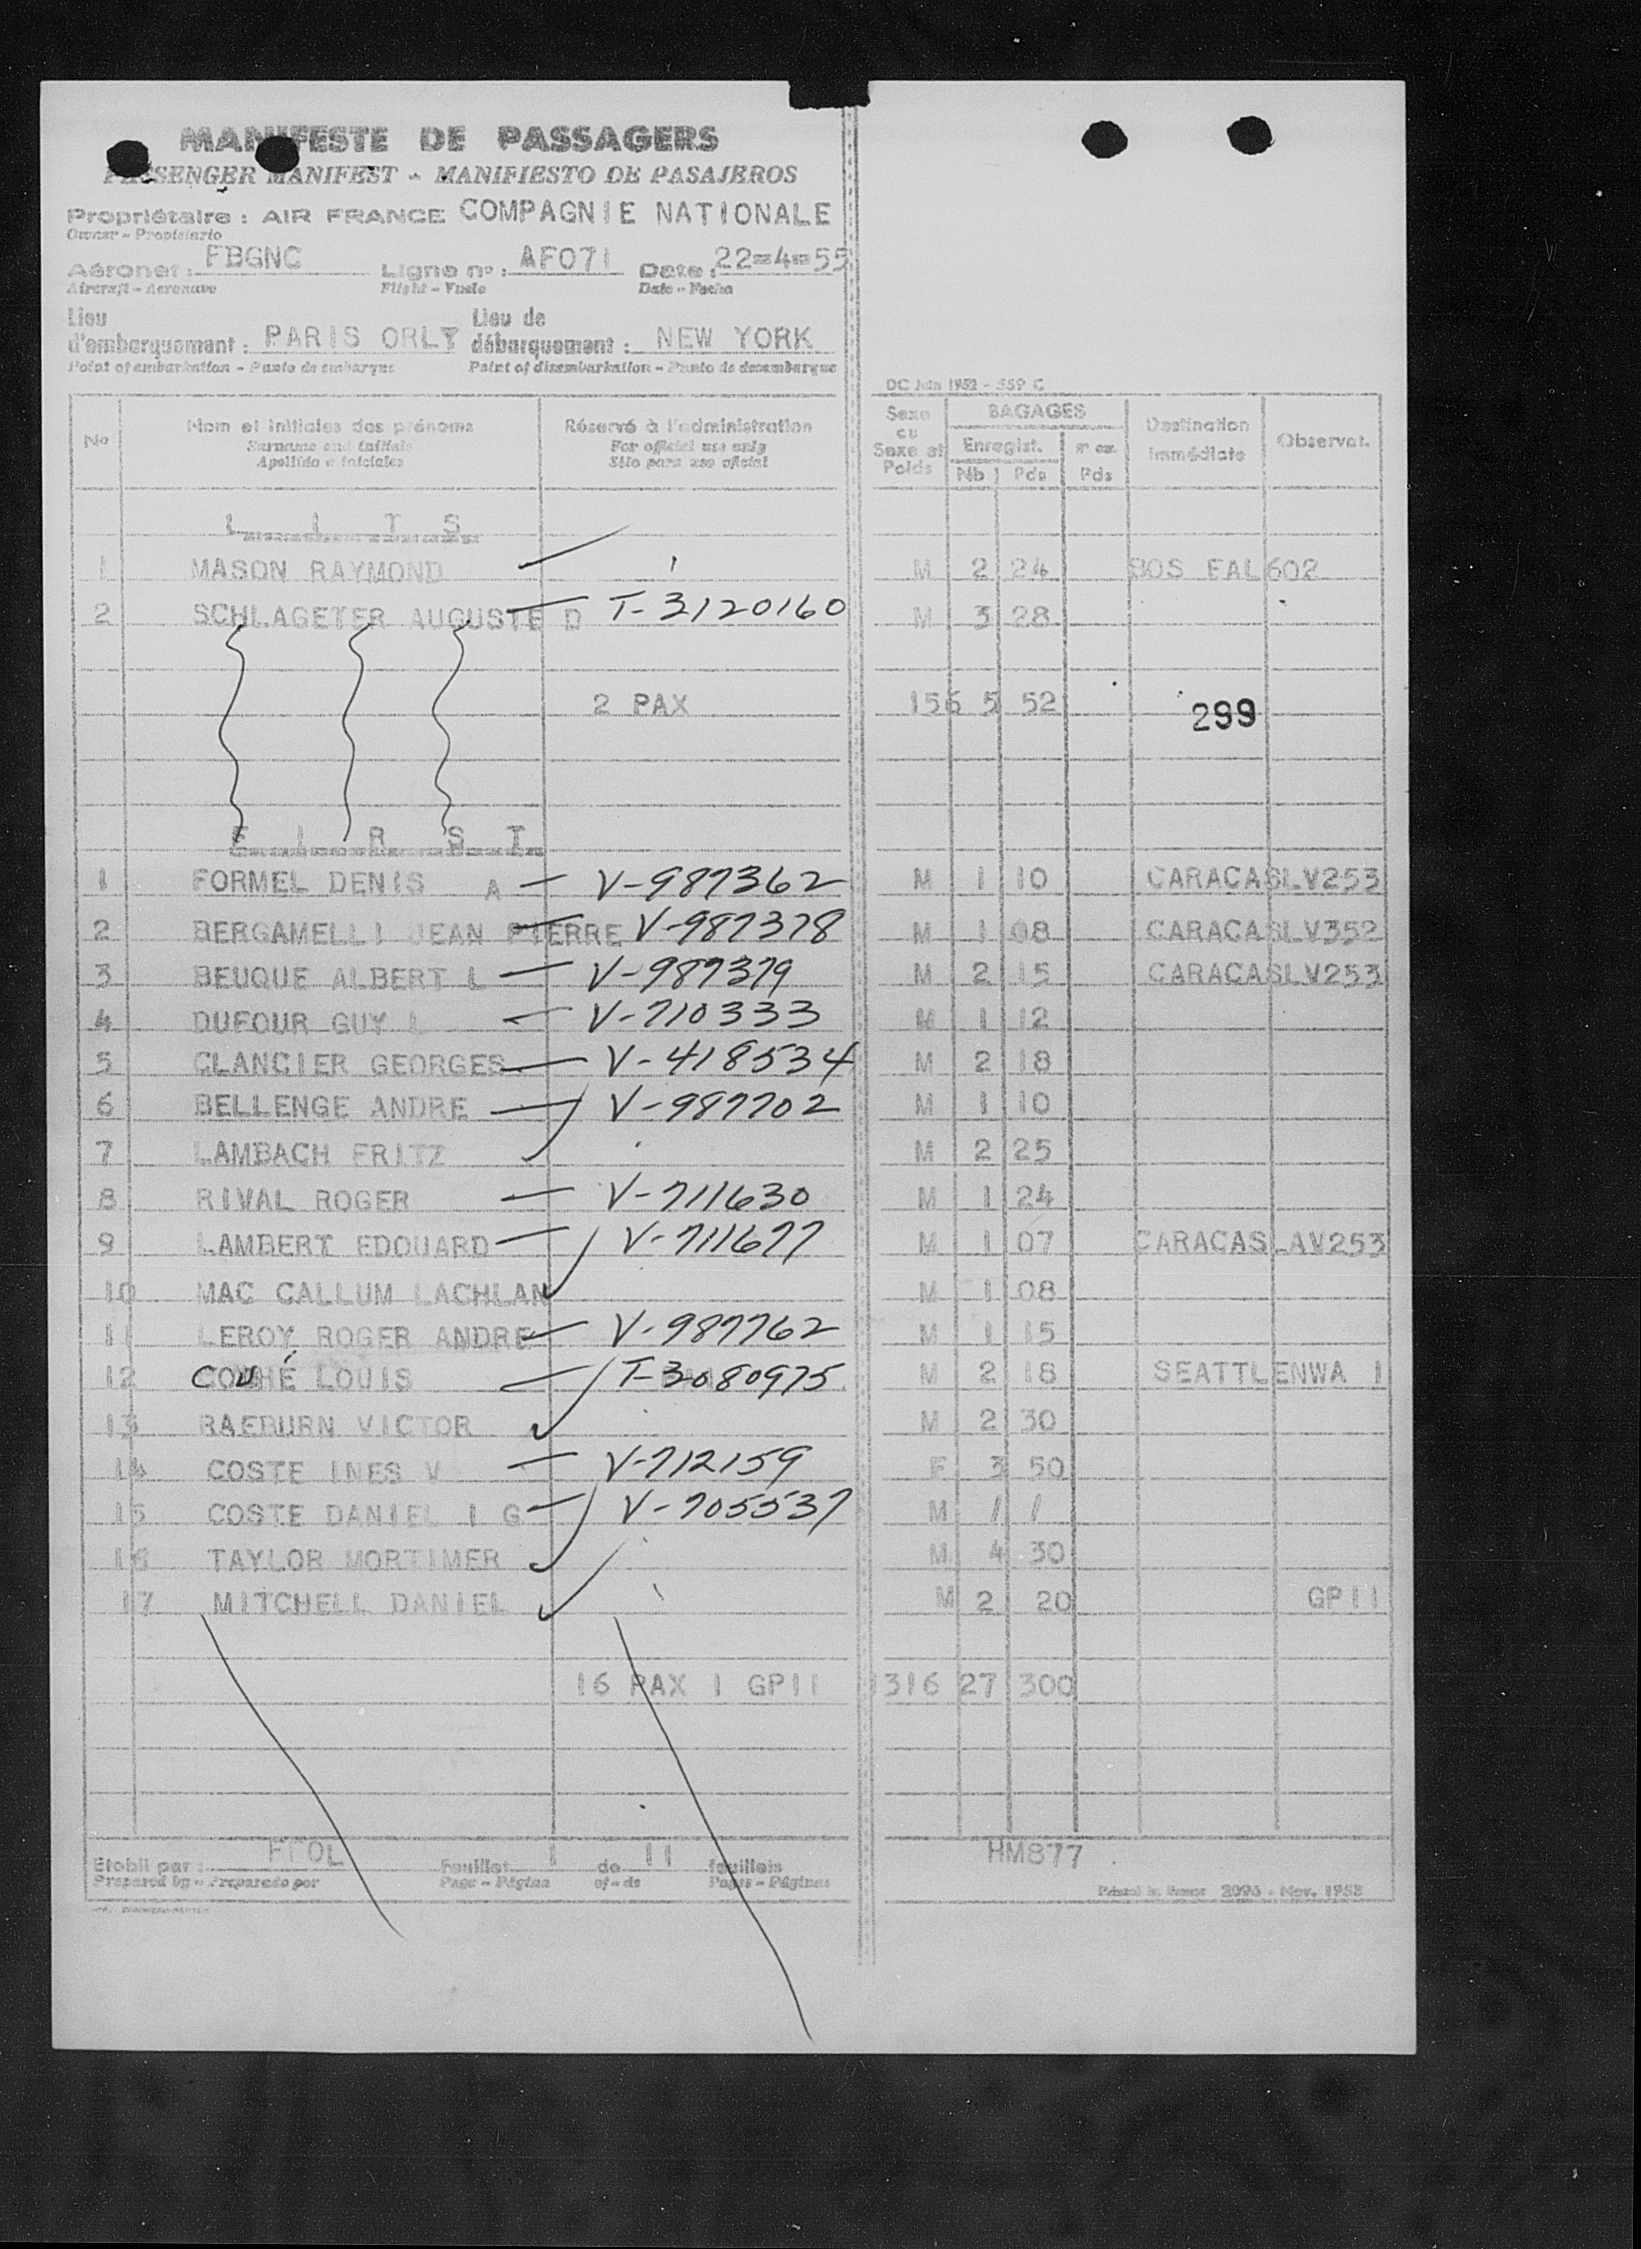 MANIFESTE DE PASSAGERS
PASSENGER MANIFEST - MANIFIESTO DE PASAJEROS
Propriétaire : AIR FRANCE COMPAGNIE NATIONALE
Owner - Propietario
Aéronef : FBGNC Ligne no : AF071 Date : 22=4=55
Aircraft - Aeronave Flight - Vuelo Date - Fecha
Lieu d'embarquement : PARIS ORLY Lieu de débarquement : NEW YORK
Point of embarkation - Punto de embarque Point of disembarkation - Punto de desembarque
DC Juin 1952 - 559 C
No Nom et initiales des prénoms Réservé à l'administration Sexe ou Sexe et Poids BAGAGES Destination immédiate Observat.
Surname and initials For official use only Enregist.
Apellido e iniciales Sólo para uso oficial Nb Pds Pds
L I T S
1 MASON RAYMOND M 2 24 BOS EAL 602
2 SCHLAGETER AUGUSTE D T-3120160 M 3 28
2 PAX 156 5 52
299
F I R S T
1 FORMEL DENIS A V-987362 M 1 10 CARACAS LV253
2 BERGAMELLI JEAN PIERRE V-987378 M 1 08 CARACAS LV352
3 BEUQUE ALBERT L V-987379 M 2 15 CARACAS LV253
4 DUFOUR GUY L V-710333 M 1 12
5 CLANCIER GEORGES V-418534 M 2 18
6 BELLENGE ANDRE V-987702 M 1 10
7 LAMBACH FRITZ M 2 25
8 RIVAL ROGER V-711630 M 1 24
9 LAMBERT EDOUARD V-711677 M 1 07 CARACAS LAV253
10 MAC CALLUM LACHLAN M 1 08
11 LEROY ROGER ANDRE V-987762 M 1 15
12 LOUIS T-3080975 M 2 18 SEATTLE NWA 1
13 RAEBURN VICTOR M 2 30
14 COSTE INES V V-712159 F 3 50
15 COSTE DANIEL I G V-705537 M / /
16 TAYLOR MORTIMER M 4 30
17 MITCHELL DANIEL M 2 20 GP11
16 PAX 1 GP11 1316 27 300
Etabli par : Feuillet 1 de 11 feuillets HM877
Prepared by - Preparado por Page - Página of - de Pages - Páginas
Printed in France 2096 - Nov. 1953